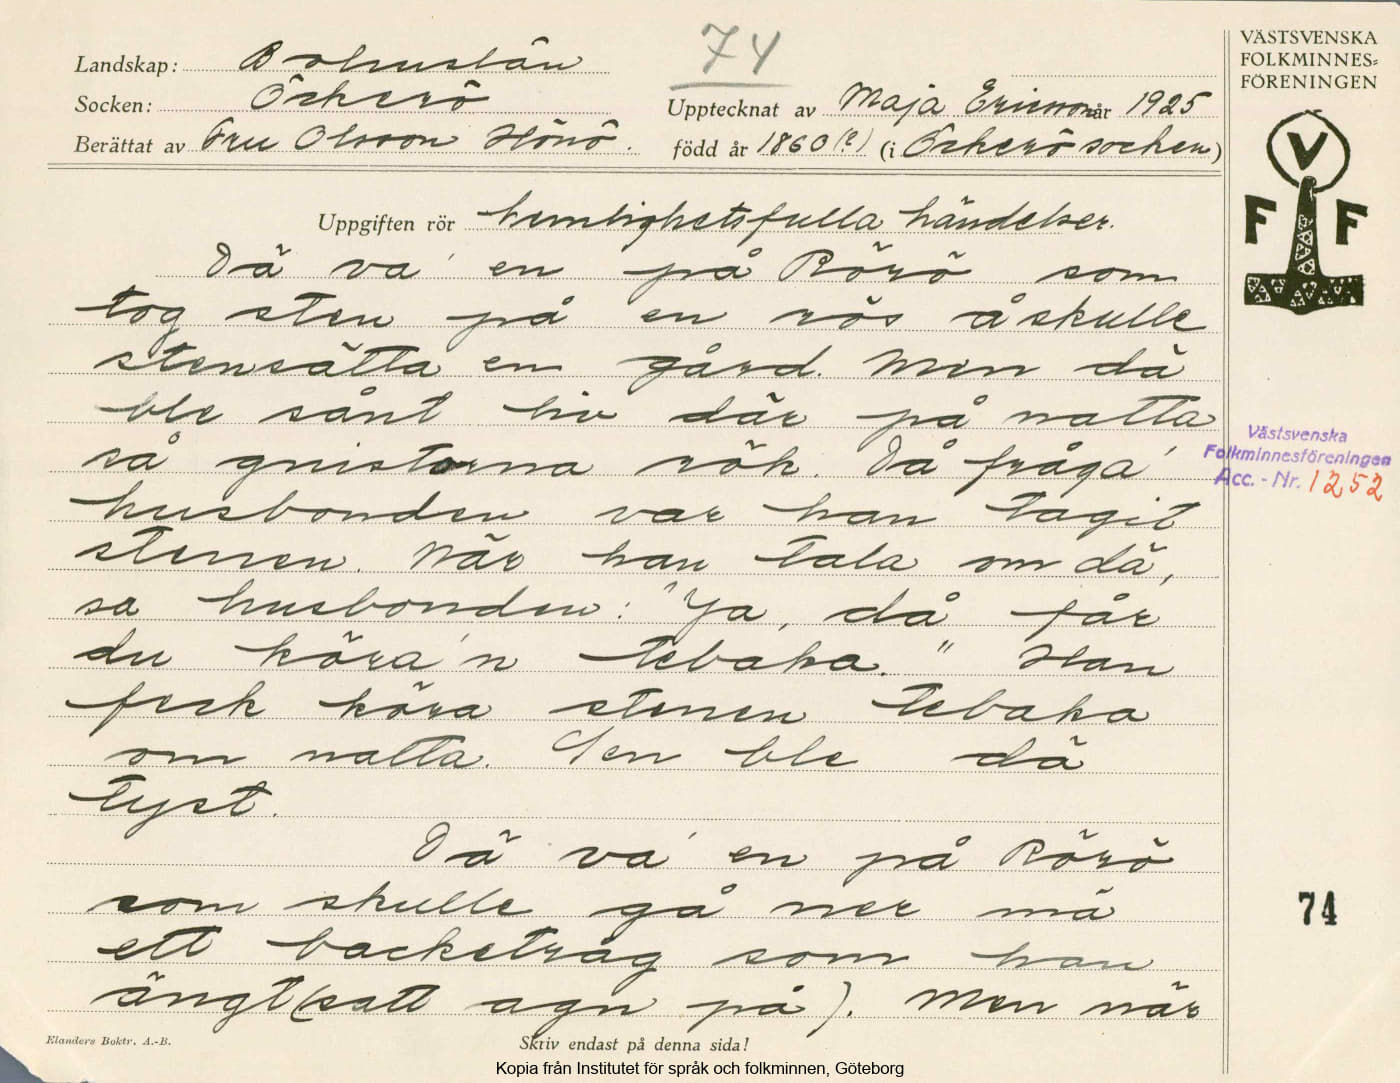 74
Landskap: Bohuslän
Socken: Öckerö
Upptecknat av Maja Ericson år 1925
Berättat av Fru Olsson Hönö.
född år 1860(?) (i Öckerö socken)
Uppgiften rör hemlighetsfulla händelser.
Dä va' en på Rörö som
tog sten på en rös å skulle
stensätta en gård. Men dä
ble sånt liv där på natta
så gnistorna rök. Då fråga'
husbonden var han tagit
stenen. När han tala om dä,
sa husbonden: "Ja, då får
du köra'n tebaka." Han
feck köra stenen tebaka
om natta. Sen ble dä
tyst.
Dä va' en på Rörö
som skulle gå ner mä
ett backetråg som han
ängt (satt agn på). Men när
Elanders Boktr. A.-B.
Skriv endast på denna sida!
VÄSTSVENSKA
FOLKMINNES=
FÖRENINGEN
V
F F
Västsvenska
Folkminnesföreningen
Acc. - Nr. 1252
74
Kopia från Institutet för språk och folkminnen, Göteborg